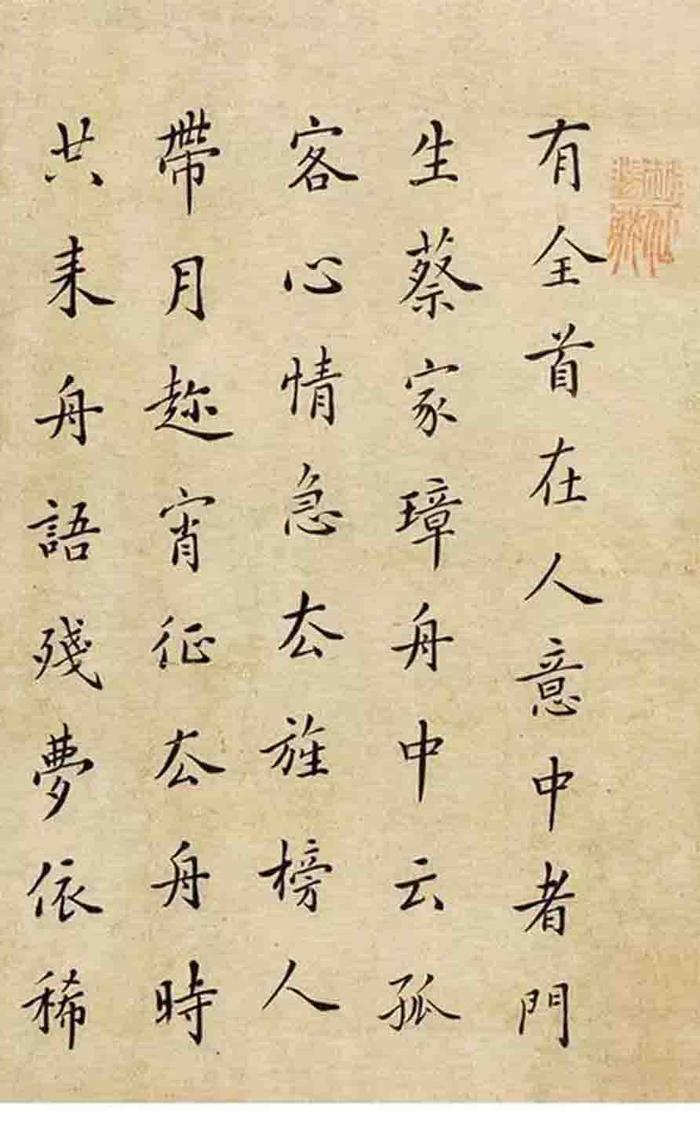 有全首在人意中者門
生蔡家璋舟中云孤
客心情急厺旌榜人
帶月趂宵征厺舟時
共来舟語殘夢依稀